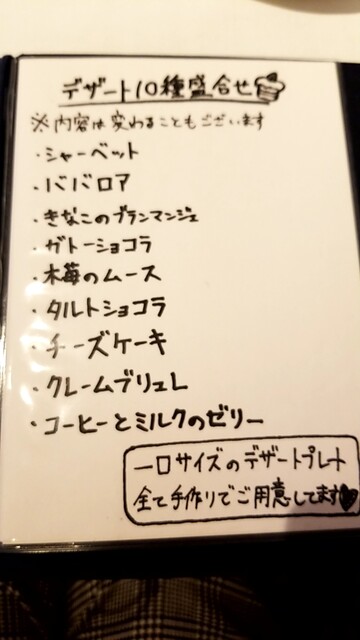 デザート10種盛合せ
※内容は変わることもございます
・シャーベット
・ババロア
・きなこのブランマンジェ
・ガトーショコラ
・木苺のムース
・タルトショコラ
・チーズケーキ
・クレームブリュレ
・コーヒーとミルクのゼリー
一口サイズのデザートプレート
全て手作りでご用意してます♥